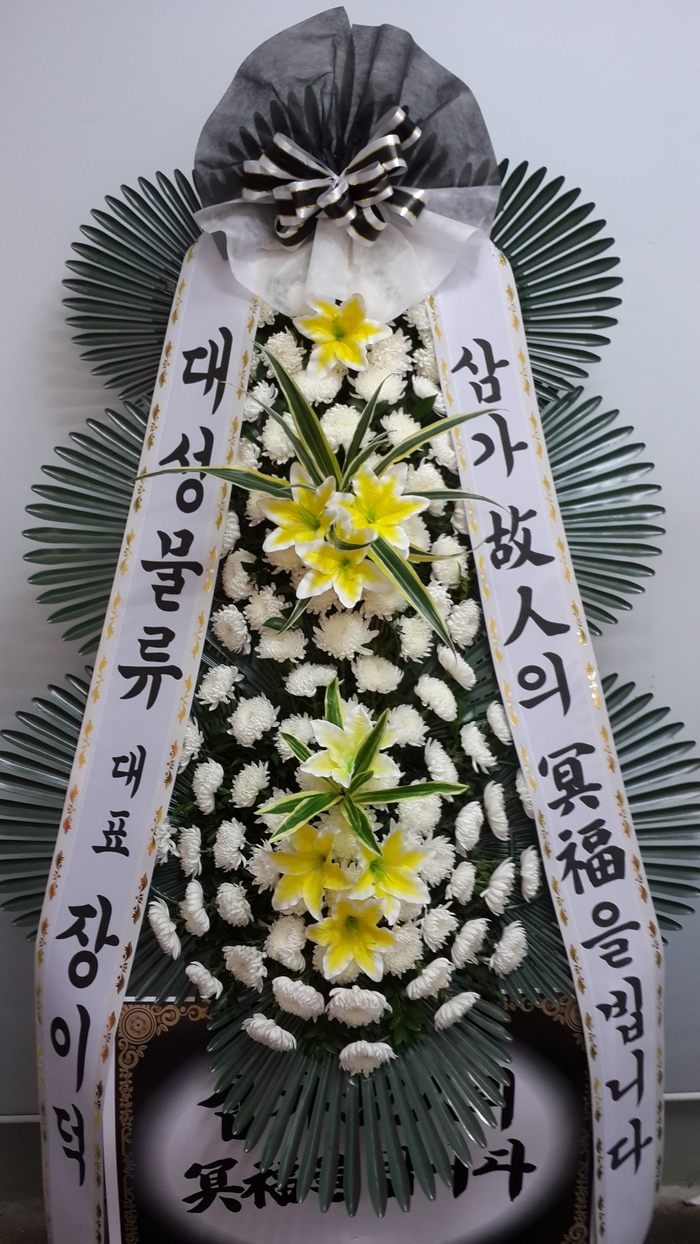 대성물류 대표 장이덕
삼가 故人의 冥福을 빕니다
冥福